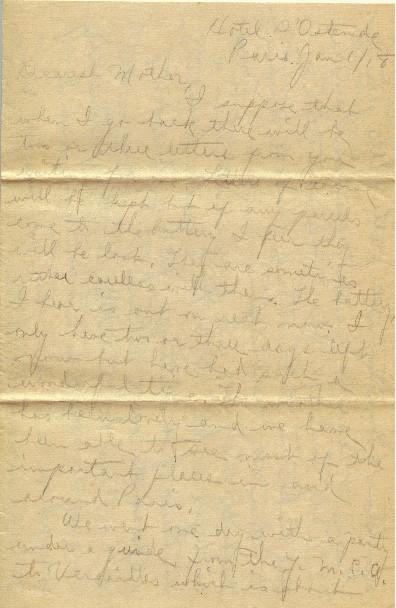 Hotel D'Ostende
Paris. Jan 1/18
Dearest Mother
I suppose that
when I go back there will be
two or three letters from you
will be kept but if any parcels
come to the battery I fear they
will be lost. They are sometimes
rather careless with them. The battery
I hear is out on rest now. I
only have two or three days left
now but have had such a
wonderful time. The weather
has been lovely and we have
been able to see most of the
important places in and
around Paris.
We went one day with a party
under a guide from the Y.M.C.A.
to Versailles which is about